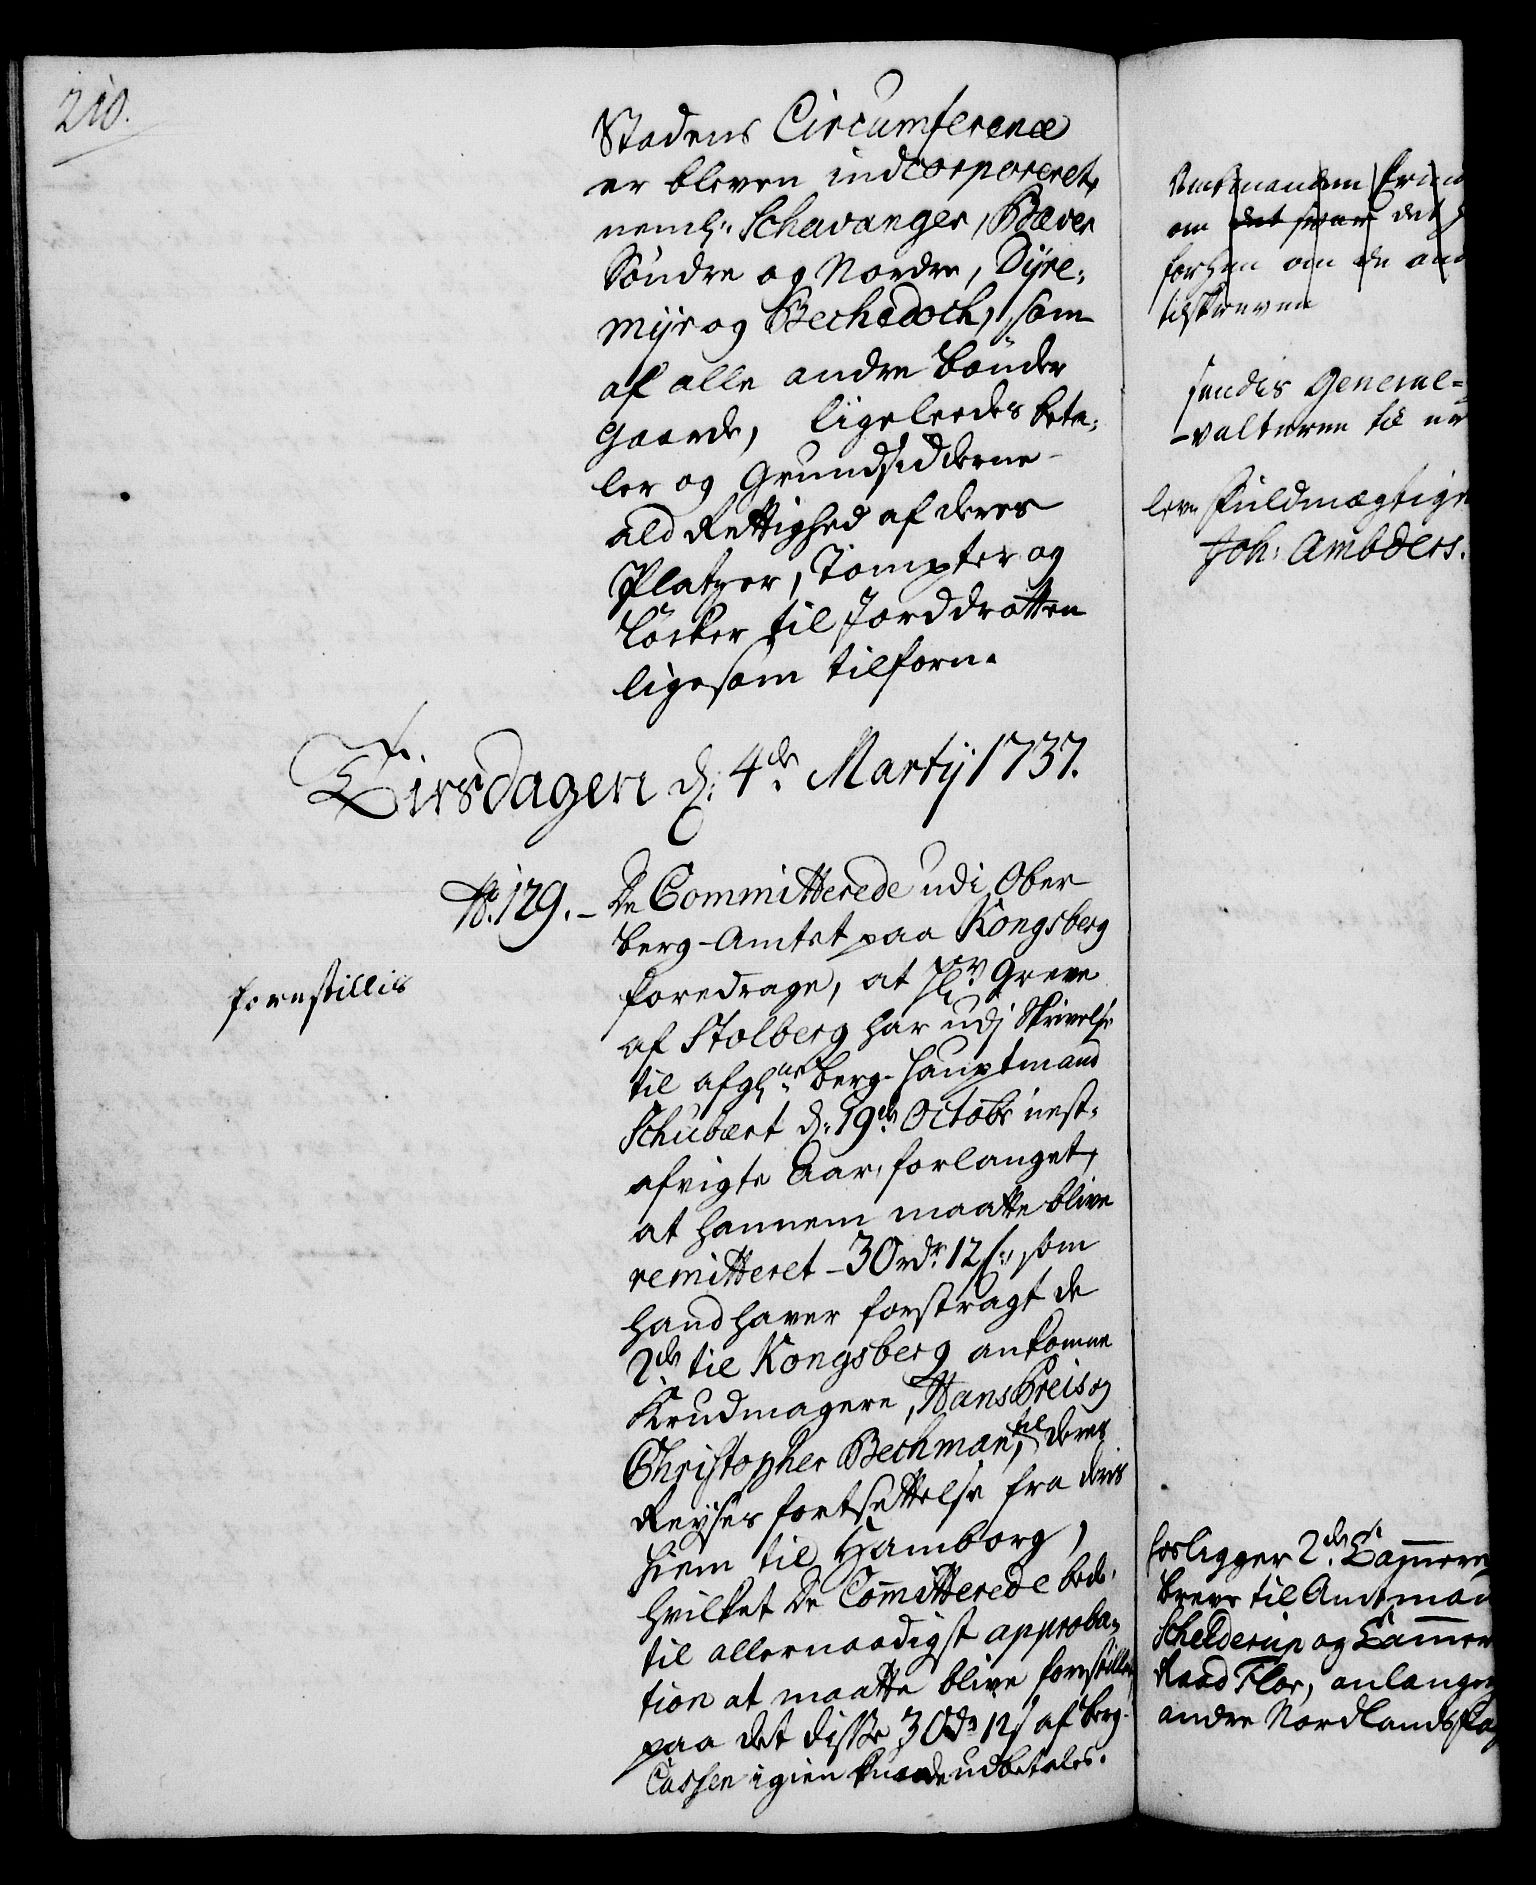 210.
Stadens Circumference
er bleven indcorporeret,
neml: Schavanger, Bæver
Søndre og Nordre, Dyre-
myr og Bechedoch, som
af alle andre bønder
Gaarde, ligeleedes beta-
ler og Grundsidderne
ald Rettighed af deres
Platzer, Tompter og
Løcker til Jorddrotten
ligesom tilforn.
Tirsdagen d: 4de Martij 1737.
No. 129. - De Committerede udi Ober
berg-Amtet paa Kongsberg
forestillis
foredrage, at Hr Greve
af Stolberg har udj Skrivelse
til afgl. berg-Hauptmand
Schubært d: 19de Octobr nest-
afvigte Aar, forlanget,
at hannem maatte blive
remitteret - 30 rdr. 12 s:, som
hand haver forstragt de
2de til Kongsberg ankomne
Krudmagere, Hans Preis og
Christopher Bechman, til deres
Reyses fortsettelse fra deris
hiem til Hamborg,
hvilket De Committerede bede
til allernaadigst approba-
tion at maatte blive forestillet,
paa det disse 30 dr 12 s af berg-
Cassen igien kunde udbetales.
Amtmanden
om det svar det
forhen om de and
tilskreven
sendis General-
-valteren til
leve Fuldmægtige
Joh: Ambders.
forligger 2de Cammer
breve til Amtmand
Schelderup og Cammer
Raad Flor, anlangen
andre Nordlandske